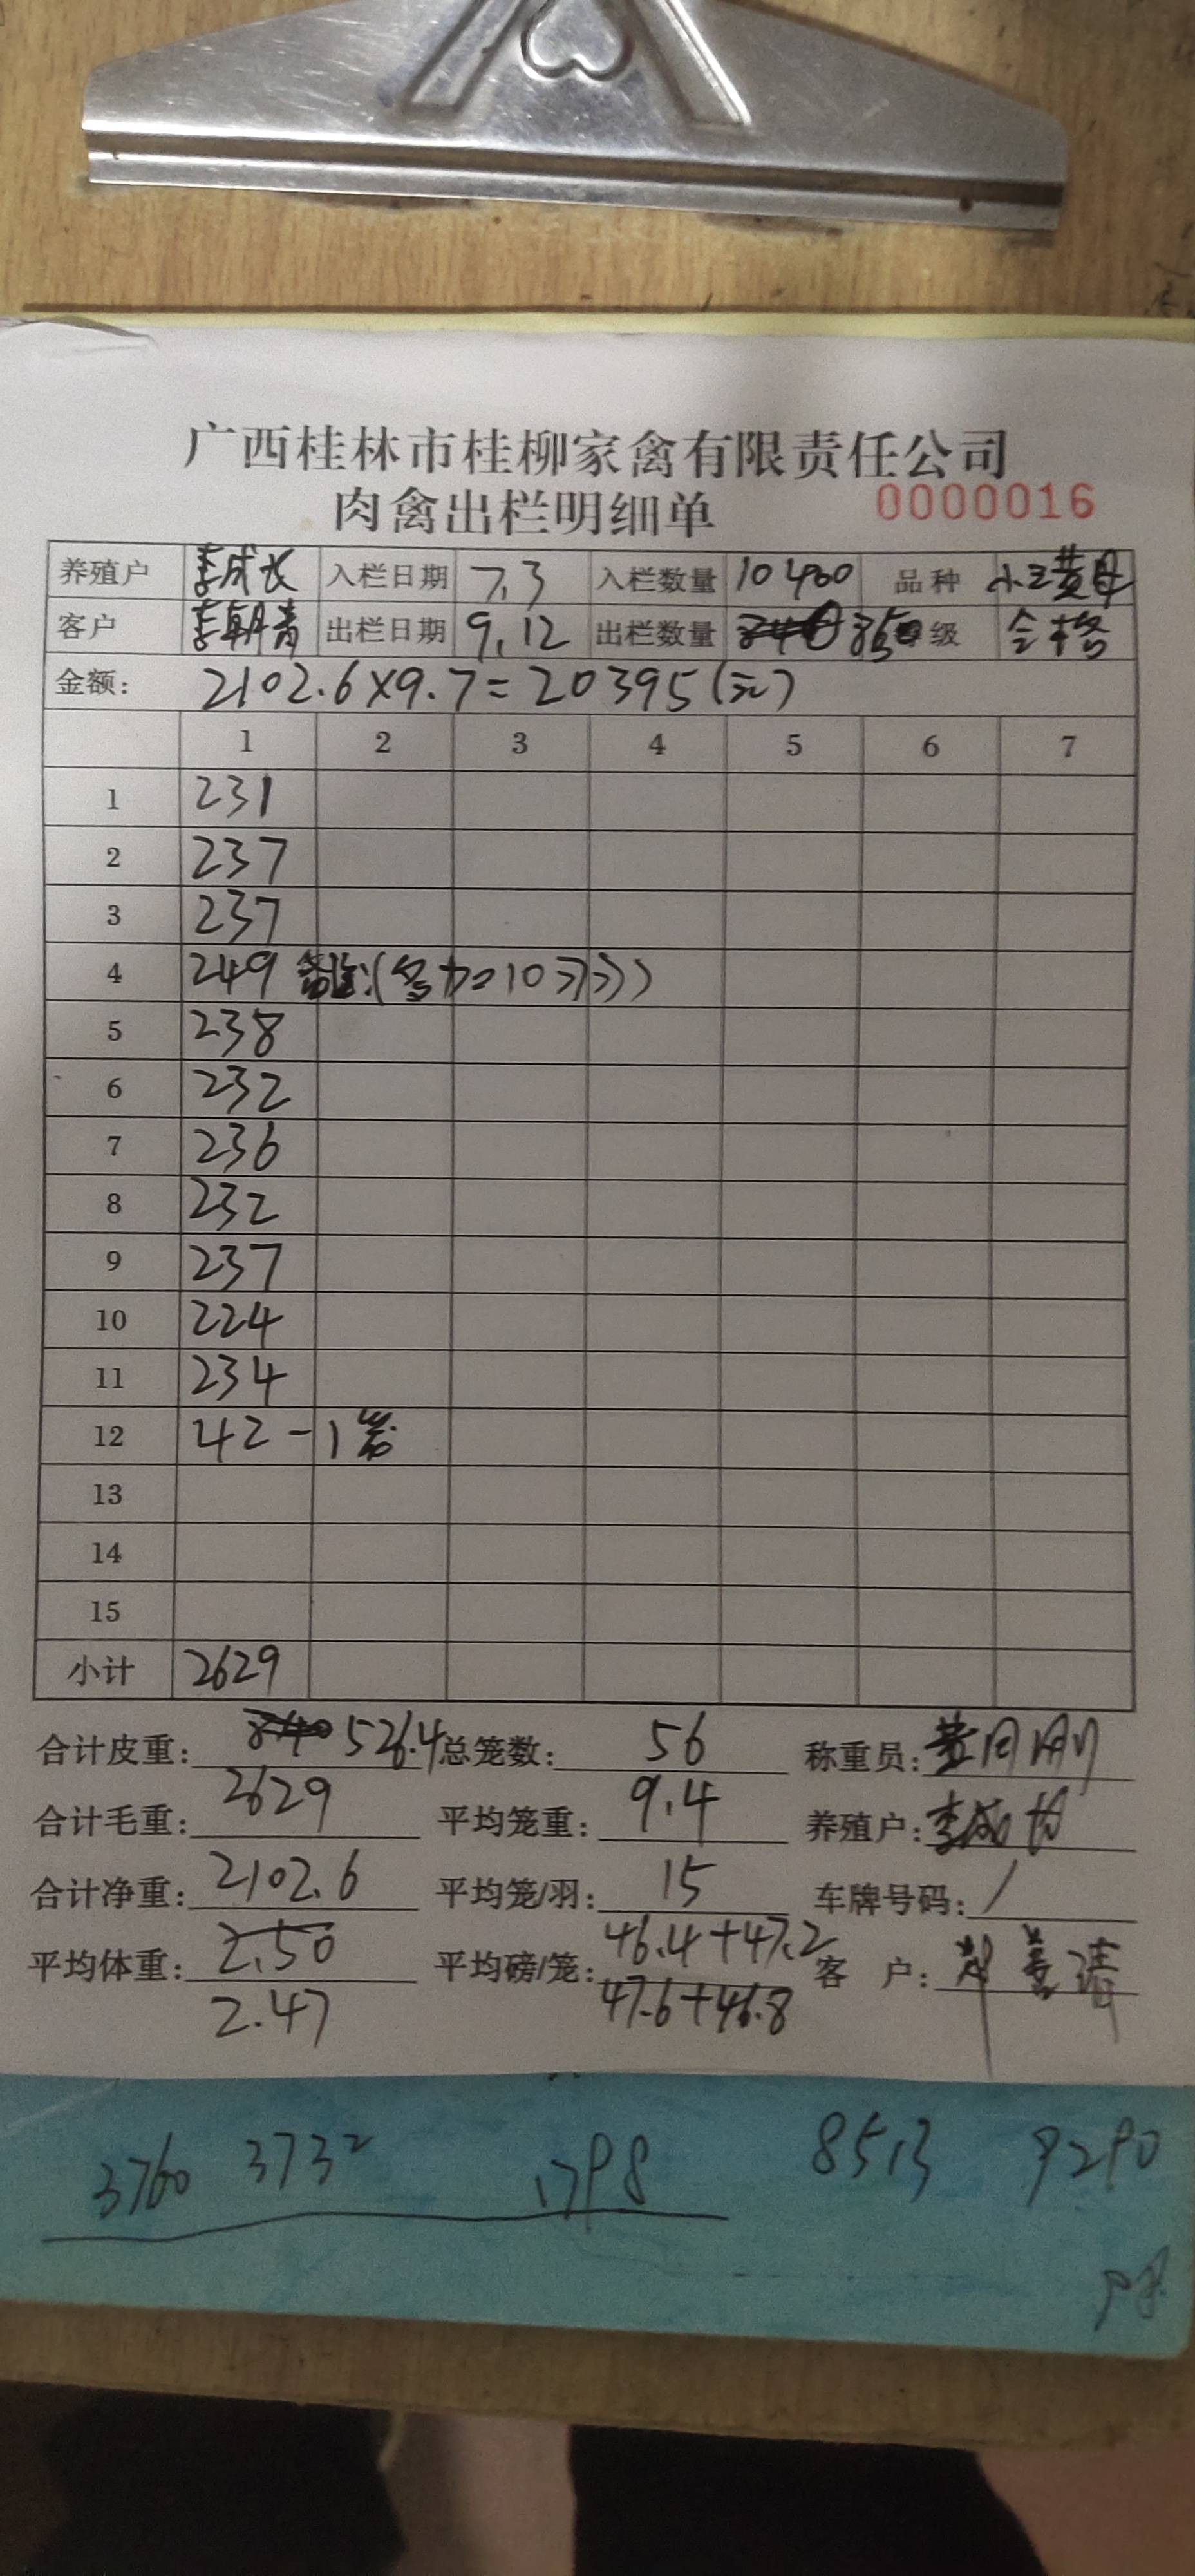 广西桂林市桂柳家禽有限责任公司
肉禽出栏明细单 0000016
养殖户 李成长 入栏日期 7.3 入栏数量 10400 品种 小三黄母
客户 李朝青 出栏日期 9.12 出栏数量 840 850 级 合格
金额: 2102.6×9.7=20395(元)
1 2 3 4 5 6 7
1 231
2 237
3 237
4 249 备注:(多加10只)
5 238
6 232
7 236
8 232
9 237
10 224
11 234
12 42-1笼
13
14
15
小计 2629
合计皮重: 840 526.4 总笼数: 56 称重员:
合计毛重: 2629 平均笼重: 9.4 养殖户: 李成长
合计净重: 2102.6 平均笼/羽: 15 车牌号码: /
平均体重: 2.50 平均磅/笼: 46.4+47.2 客 户:
2.47 47.6+46.8
3760 3732 1798 8513 9290
98